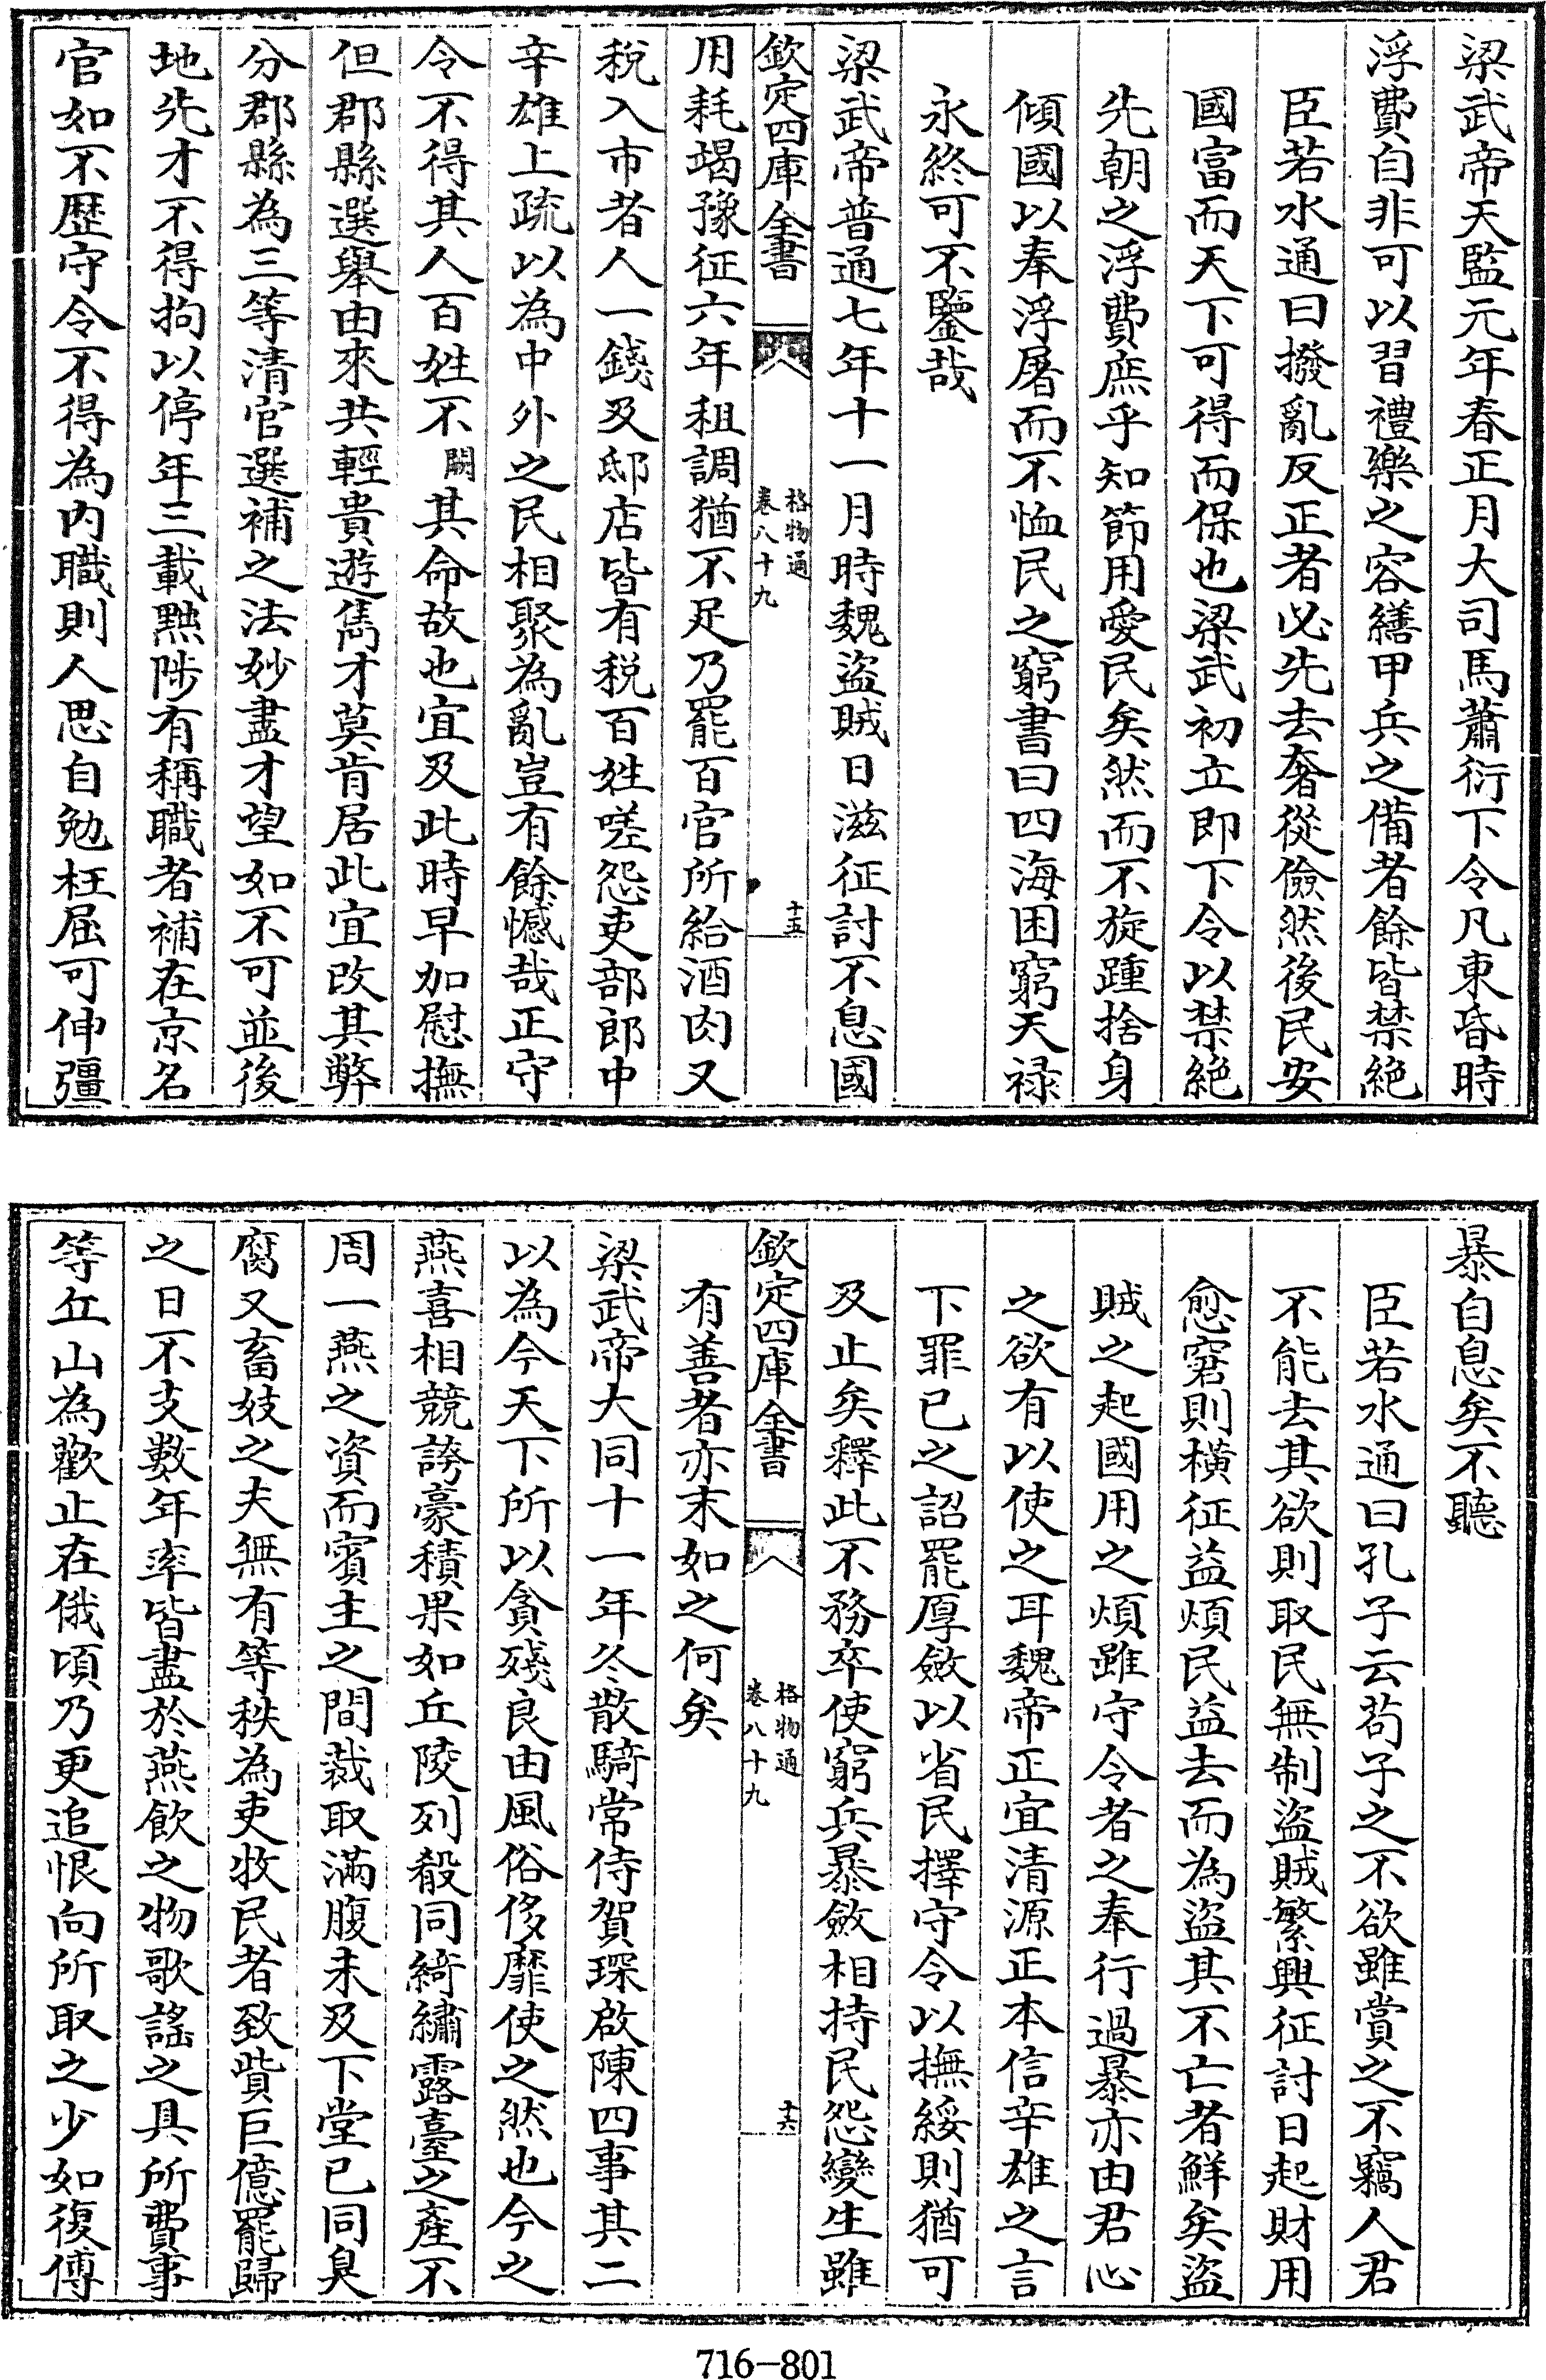 梁武帝天監元年春正月大司馬蕭衍下令凡東昏時
浮費自非可以習禮樂之容繕甲兵之備者餘皆禁絶
臣若水通曰撥亂反正者必先去奢從儉然後民安
國富而天下可得而保也梁武初立即下令以禁絶
先朝之浮費庶乎知節用愛民矣然而不旋踵捨身
傾國以奉浮屠而不恤民之窮書曰四海困窮天禄
永終可不鑒哉
梁武帝普通七年十一月時魏盜賊日滋征討不息國
欽定四庫全書
格物通
卷八十九
十五
用耗竭豫征六年租調猶不足乃罷百官所給酒肉又
稅入市者人一錢及邸店皆有稅百姓嗟怨吏部郎中
辛雄上疏以為中外之民相聚為亂豈有餘憾哉正守
令不得其人百姓不闕其命故也宜及此時早加慰撫
但郡縣選舉由來共輕貴遊儁才莫肯居此宜改其弊
分郡縣為三等清官選補之法妙盡才望如不可並後
地先才不得拘以停年三載黜陟有稱職者補在京名
官如不歷守令不得為内職則人思自勉枉屈可伸彊
暴自息矣不聽
臣若水通曰孔子云茍子之不欲雖賞之不竊人君
不能去其欲則取民無制盜賊繁興征討日起財用
愈窘則橫征益煩民益去而為盜其不亡者鮮矣盜
賊之起國用之煩雖守令者之奉行過暴亦由君心
之欲有以使之耳魏帝正宜清源正本信辛雄之言
下罪已之詔罷厚斂以省民擇守令以撫綏則猶可
及止矣釋此不務卒使窮兵暴斂相持民怨變生雖
欽定四庫全書
格物通
卷八十九
十六
有善者亦末如之何矣
梁武帝大同十一年冬散騎常侍賀琛啟陳四事其二
以為今天下所以貪殘良由風俗侈靡使之然也今之
燕喜相競誇豪積果如丘陵列殽同綺繡露臺之產不
周一燕之資而賓主之間裁取滿腹未及下堂已同臭
腐又畜妓之夫無有等秩為吏牧民者致貲巨億罷歸
之日不支數年率皆盡於燕飲之物歌謠之具所費事
等丘山為歡止在俄頃乃更追恨向所取之少如復傅
716-801